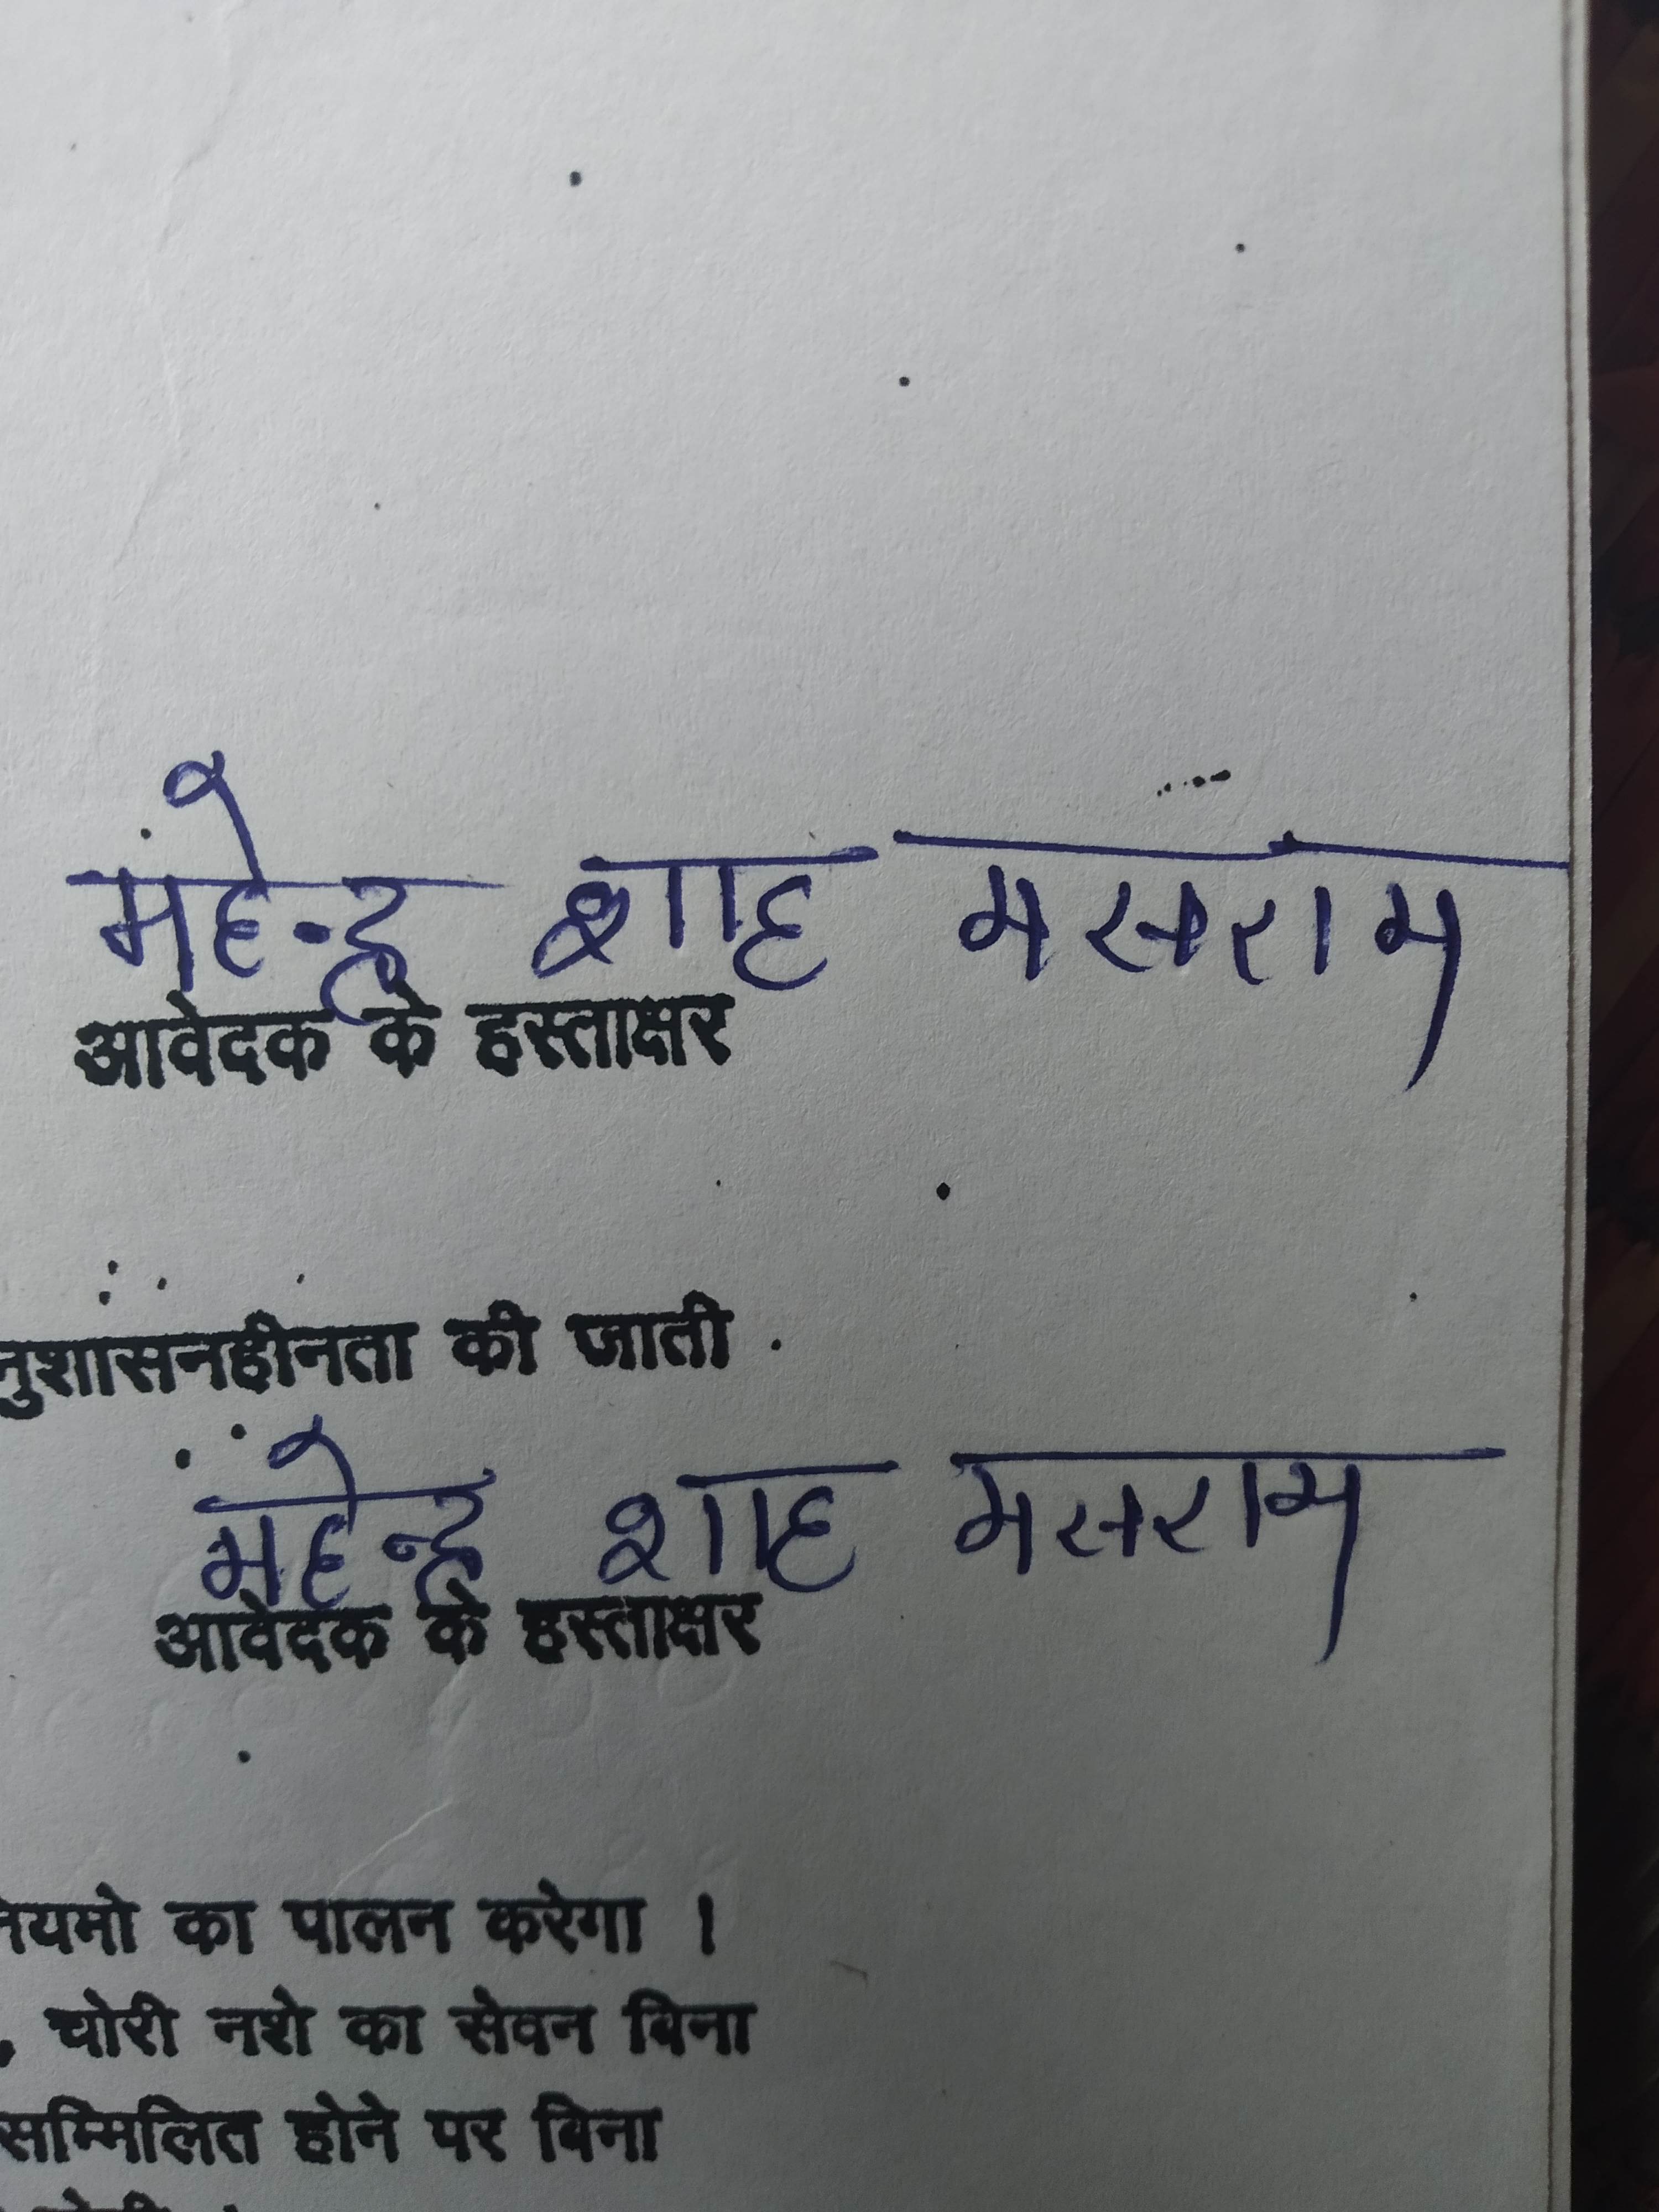 महेन्द्र शाह मसराम
आवेदक के हस्ताक्षर
नुशासनहीनता की जाती
महेन्द्र शाह मसराम
आवेदक के हस्ताक्षर
नियमो का पालन करेगा ।
, चोरी नशे का सेवन बिना
सम्मिलित होने पर बिना